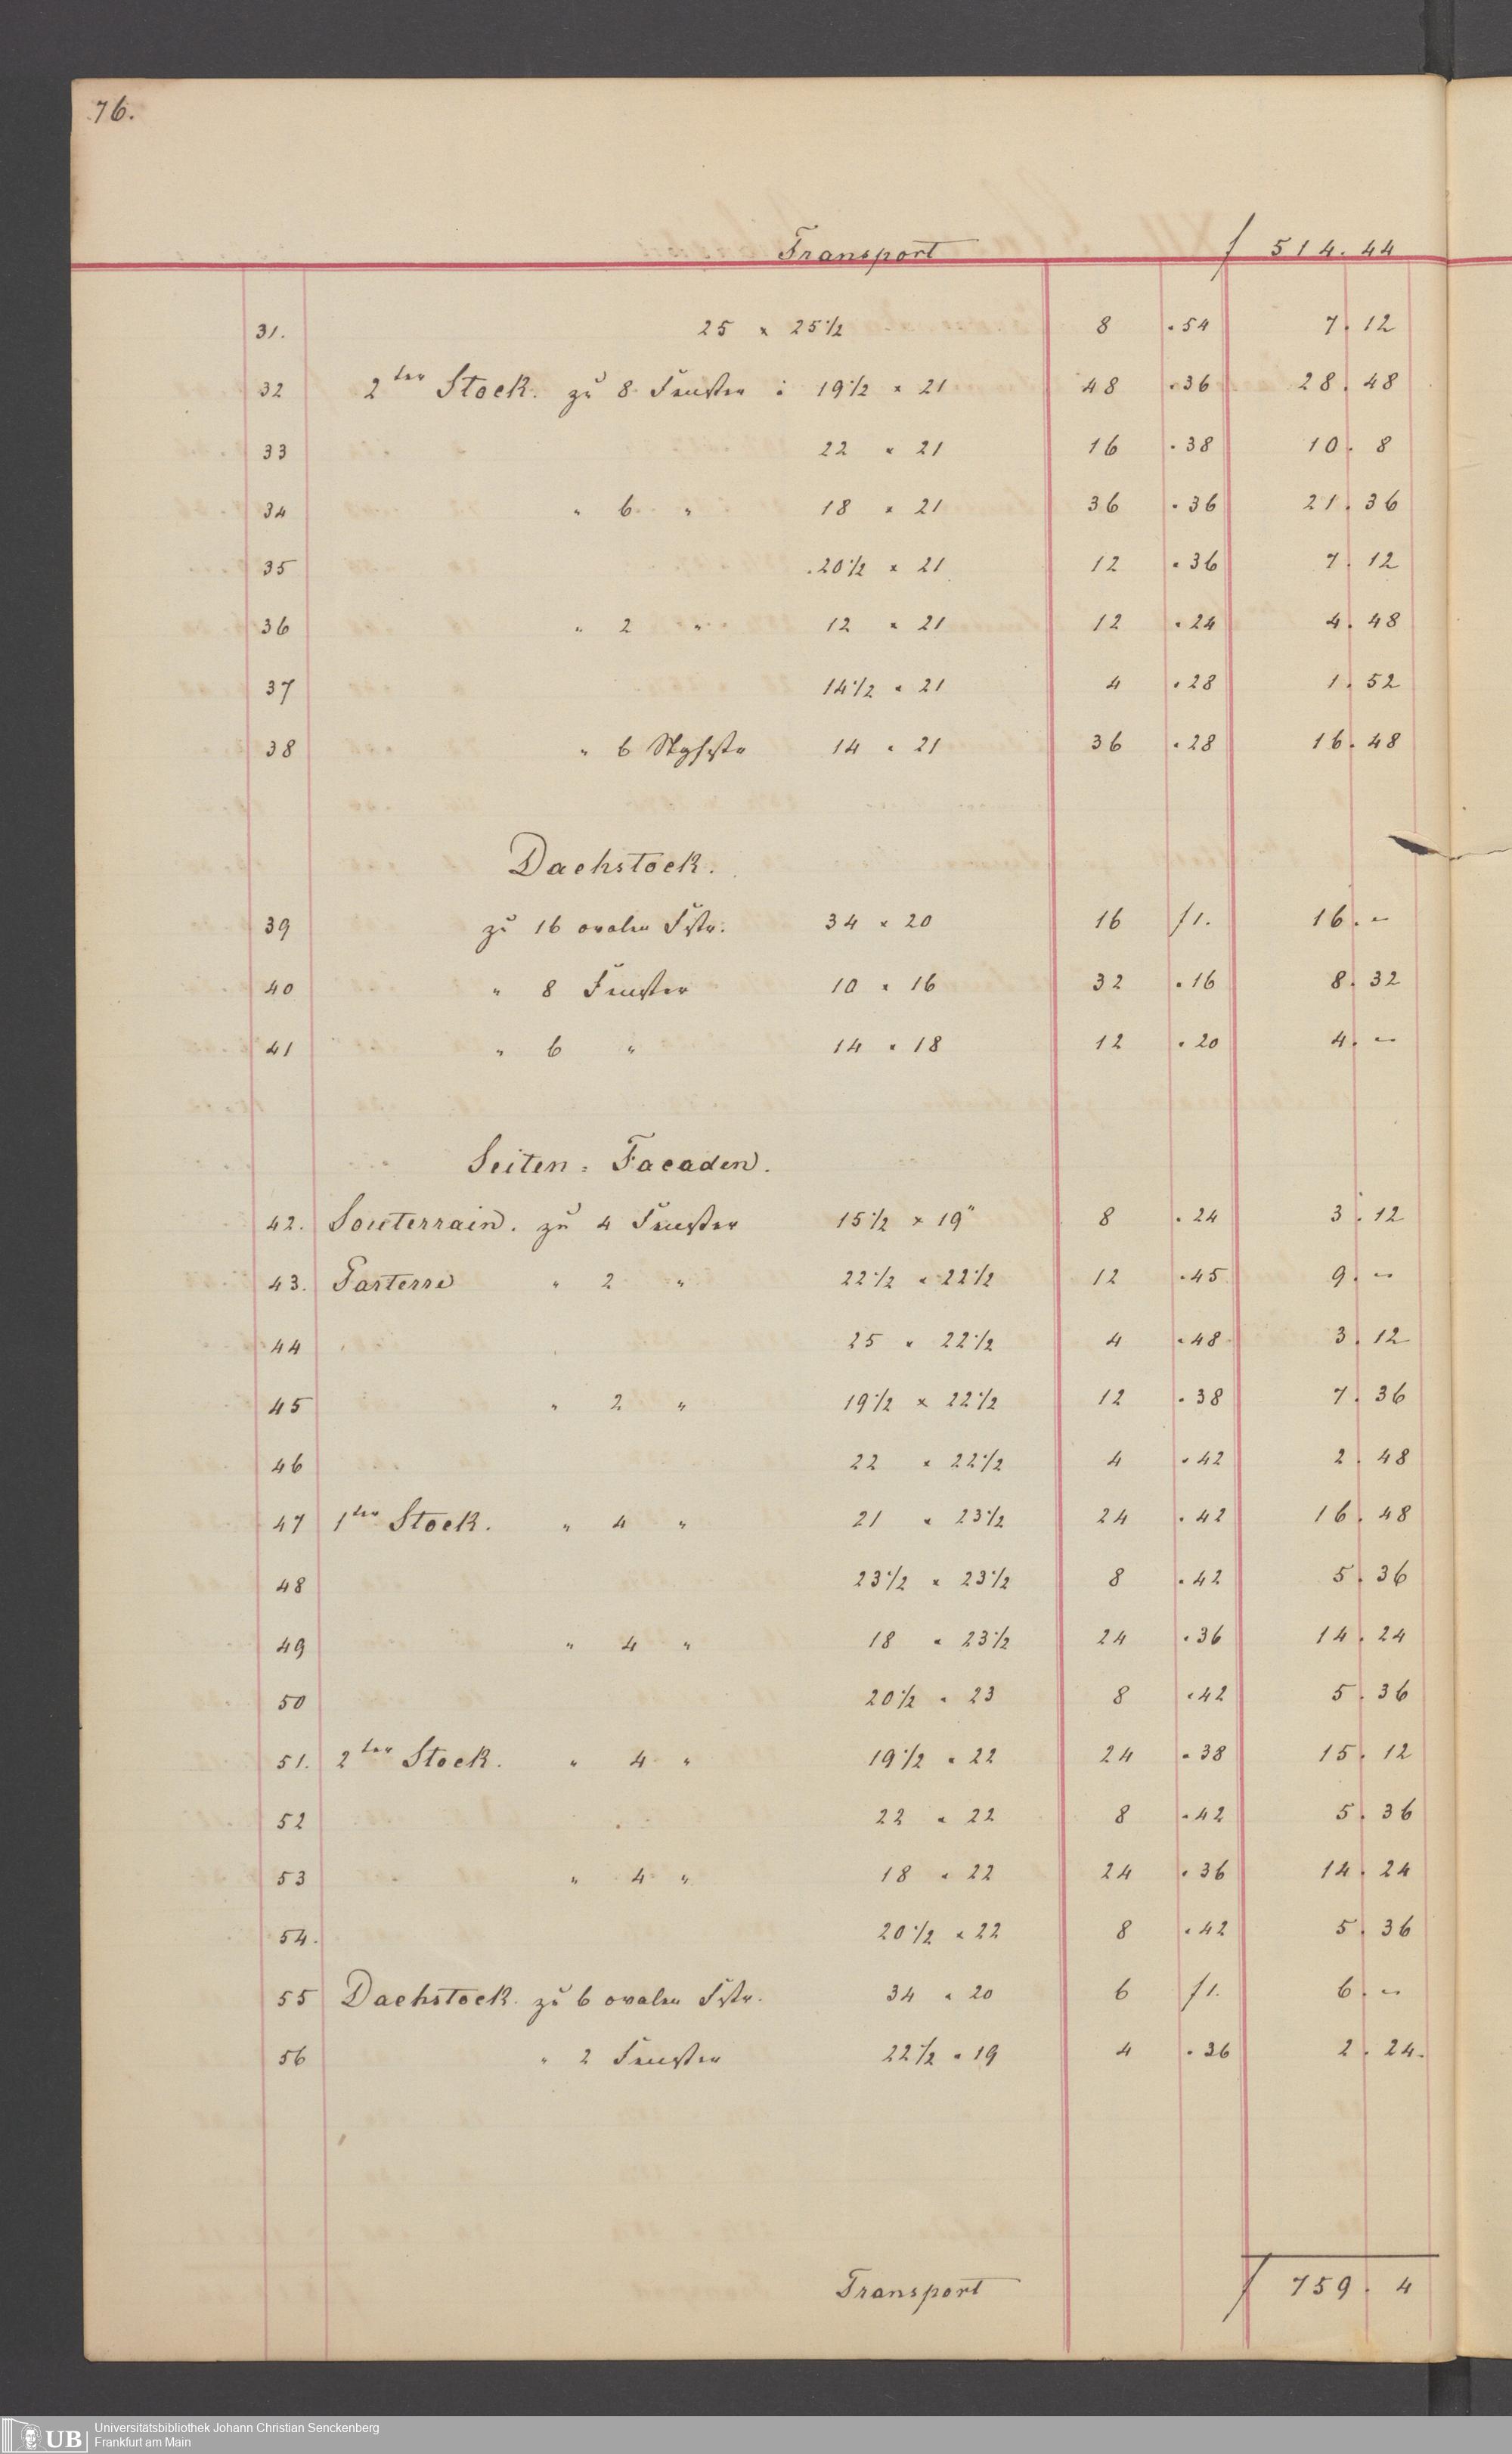 76.
Transport f 514. 44
31. 25 × 25 1/2 8 . 54 7. 12
32 2ter Stock. zu 8 Fenster : 19 1/2 × 21 48 . 36 28. 48
33 22 × 21 16 . 38 10. 8
34 " 6 " 18 × 21 36 . 36 21. 36
35 20 1/2 × 21 12 . 36 7. 12
36 " 2 " 12 × 21 12 . 24 4. 48
37 14 1/2 × 21 4 . 28 1. 52
38 " 6 14 × 21 36 . 28 16. 48
Dachstock.
39 zu 16 ovalen Fstr. 34 × 20 16 f 1. 16. –
40 " 8 Fenster 10 × 16 32 . 16 8. 32
41 " 6 " 14 × 18 12 . 20 4. –
Seiten = Facaden.
42. Souterrain. zu 4 Fenster 15 1/2 × 19" 8 . 24 3. 12
43. Parterre " 2 " 22 1/2 × 22 1/2 12 . 45 9. –
44 25 × 22 1/2 4 . 48 3. 12
45 " 2 " 19 1/2 × 22 1/2 12 . 38 7. 36
46 22 × 22 1/2 4 . 42 2. 48
47 1ter Stock. " 4 " 21 × 23 1/2 24 . 42 16. 48
48 23 1/2 × 23 1/2 8 . 42 5. 36
49 " 4 " 18 × 23 1/2 24 . 36 14. 24
50 20 1/2 × 23 8 . 42 5. 36
51. 2ter Stock. " 4 " 19 1/2 × 22 24 . 38 15. 12
52 22 × 22 8 . 42 5. 36
53 " 4 " 18 × 22 24 . 36 14. 24
54. 20 1/2 × 22 8 . 42 5. 36
55 Dachstock. zu 6 ovalen Fstr. 34 × 20 6 f 1. 6. –
56 " 2 Fenster 22 1/2 × 19 4 . 36 2. 24.
Transport f 759. 4
UB Universitätsbibliothek Johann Christian Senckenberg
Frankfurt am Main